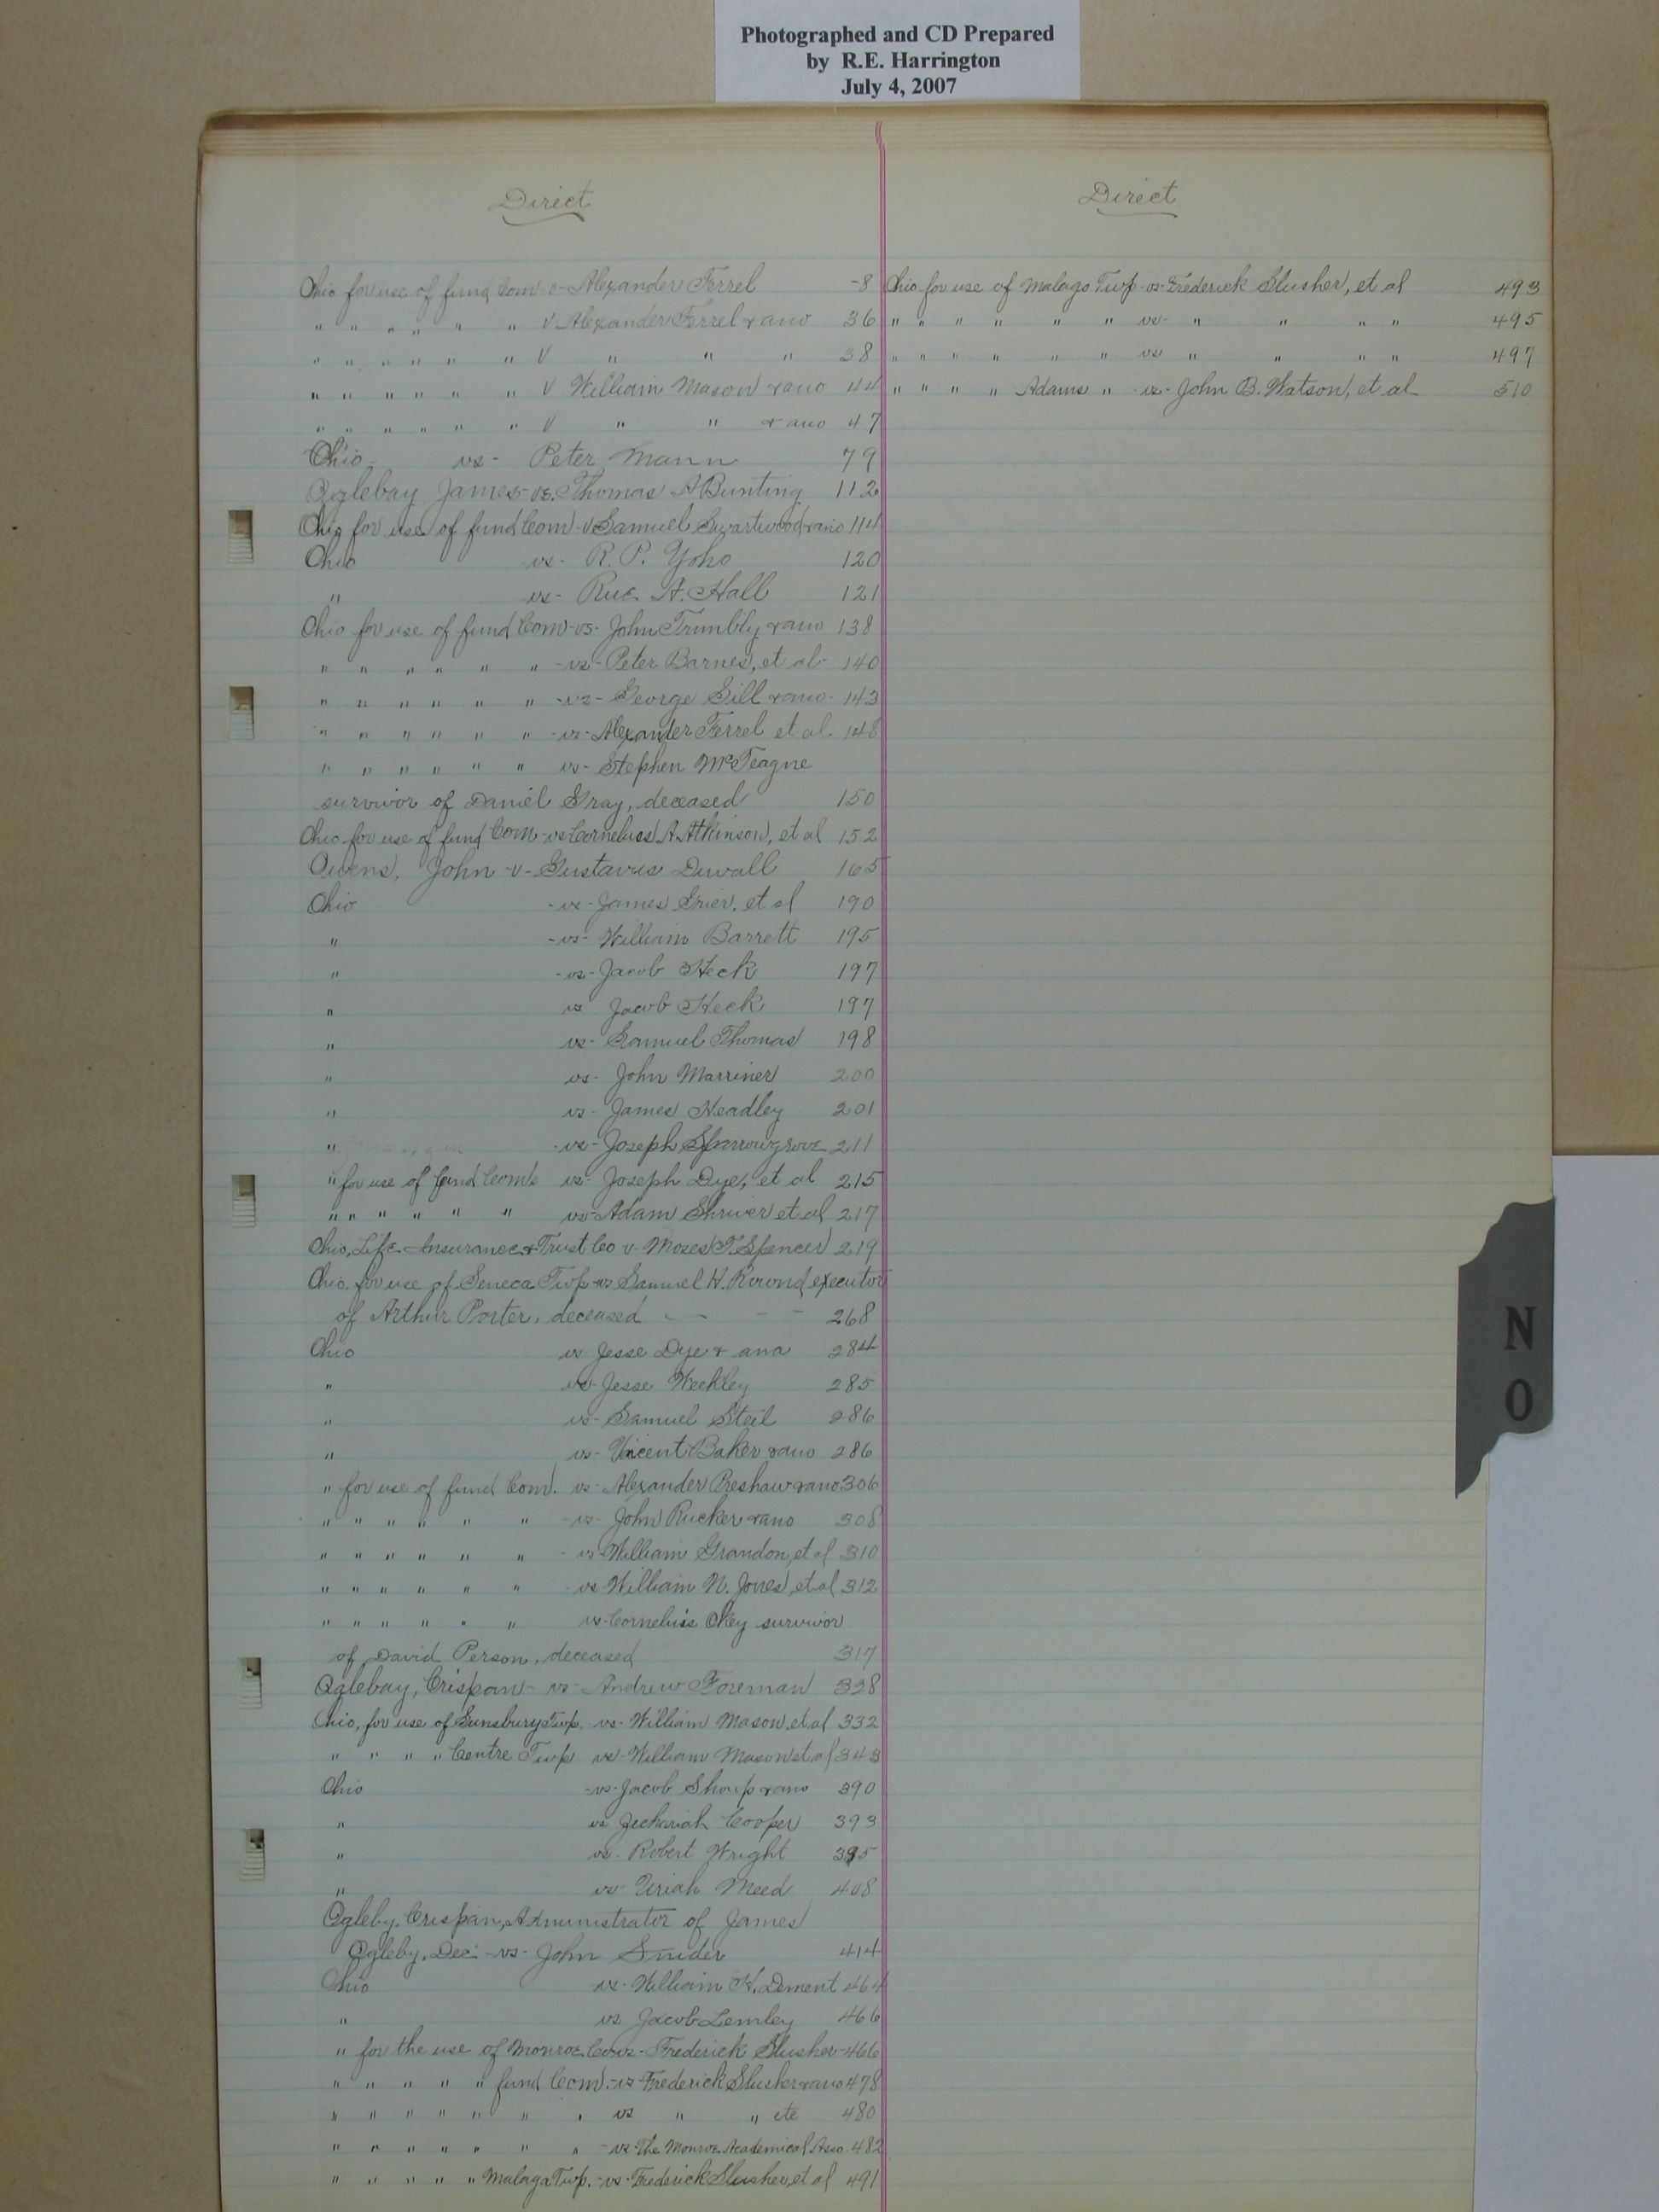 Photographed and CD Prepared
by R.E. Harrington
July 4, 2007
Direct
Ohio for use of fund Com v- Alexander Ferrel -8
" " " " " " V Alexander Ferrel & ano 36
" " " " " " V " " " 38
" " " " " " V William Mason & ano 44
" " " " " " V " " & ano 47
Ohio- vs- Peter Mann 79
Oglebay James -vs. Thomas A Bunting 112
Ohio for use of fund Com -v Samuel Swartwood & ano 114
Ohio vs- R. P. Yoho 120
" vs- Rue A. Hall 121
Ohio for use of fund Com -vs- John Trunbly & ano 138
" " " " " " -vs- Peter Barnes, et al- 140
" " " " " " -vs- George Sill & ano. 143
" " " " " " -vs- Alexander Ferrel et al 148
" " " " " " vs- Stephen McTeagne
survivor of Daniel Gray, deceased 150
Ohio for use of fund Com -vs Cornelius A. Atkinson, et al 152
Owens, John -v- Gustavus Duvall 165
Ohio -vs- James Grier, et al 190
" -vs- William Barrett 195
" -vs- Jacob Heck 197
" vs Jacob Heck 197
" vs- Samuel Thomas 198
" vs- John Marriner 200
" vs- James Headley 201
" -vs- Joseph Sparrowgrove 211
" for use of fund Com vs- Joseph Dye, et al 215
" " " " " " vs- Adam Shriver et al 217
Ohio, Life Insurance & Trust Co v- Moses T. Spencer 219
Ohio for use of Seneca Twp -vs Samuel H. Round executor
of Arthur Porter, deceased - - - - 268
Ohio vs Jesse Dye & ana 284
" vs- Jesse Weekley 285
" vs- Samuel Steil 286
" vs- Vincent Baker & ano 286
" for use of fund Com. vs- Alexander Preshaw & ano 306
" " " " " " -vs- John Rucker & ano 308
" " " " " " - vs William Grandon, et al 310
" " " " " " -vs William N. Jones, et al 312
" " " " " " vs- Cornelius Okey survivor
of David Person, deceased 317
Oglebay, Crispan- vs- Andrew Foreman 328
Ohio, for use of Sunsbury Twp. -vs- William Mason, et al 332
" " " " Centre Twp vs- William Mason et al 343
Ohio -vs- Jacob Shoup & ano 390
" vs Zechariah Cooper 393
" vs. Robert Wright 395
" vs Uriah Meed 408
Ogleby, Crispan, Administrator of James
Ogleby, Dec. -vs- John Snider 414
Ohio vs- William H. Dement 464
" vs Jacob Lemley 466
" for the use of Monroe Co vs- Frederick Slusher -466
" " " " " fund Com. -vs- Frederick Slusher & ano 478
" " " " " " " vs " " etc 480
" " " " " " " -vs The Monroe Academical Asso. 482
" " " " " Malaga Twp. -vs- Frederick Slusher, et al 491
Direct
Ohio for use of Malaga Twp -vs- Frederick Slusher, et al 493
" " " " " " vs- " " " " 495
" " " " " " vs " " " " 497
" " " " Adams " -vs- John B. Watson, et al- 510
N
O